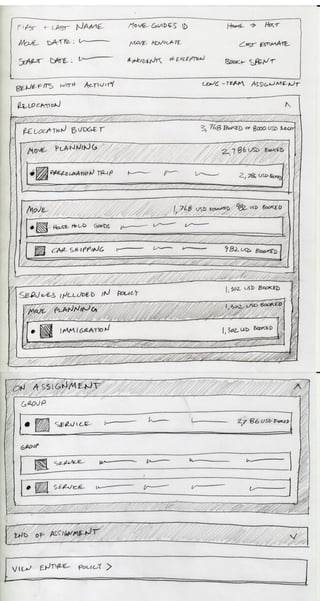 FIRST + LAST NAME MOVE GUIDES ID HOME → HOST
MOVE DATE: MOVE ADVOCATE COST ESTIMATE
START DATE: # INCIDENTS # EXCEPTION BOOK SPENT
BENEFITS WITH ACTIVITY LONG-TERM ASSIGNMENT
RELOCATION
RELOCATION BUDGET 3,768 BOOKED OF 8000 USD
MOVE PLANNING 2,786 USD BOOKED
PRERELOCATION TRIP USD BOOKED
MOVE 1,768 USD BOOKED 982 USD BOOKED
HOUSE HOLD GOODS
CAR SHIPPING 982 USD BOOKED
SERVICES INCLUDED IN POLICY 1,502 USD BOOKED
MOVE PLANNING 1,502 USD BOOKED
IMMIGRATION 1,502 USD BOOKED
ON ASSIGNMENT
GROUP
SERVICE 2,786 USD BOOKED
GROUP
SERVICE
SERVICE
END OF ASSIGNMENT
VIEW ENTIRE POLICY >